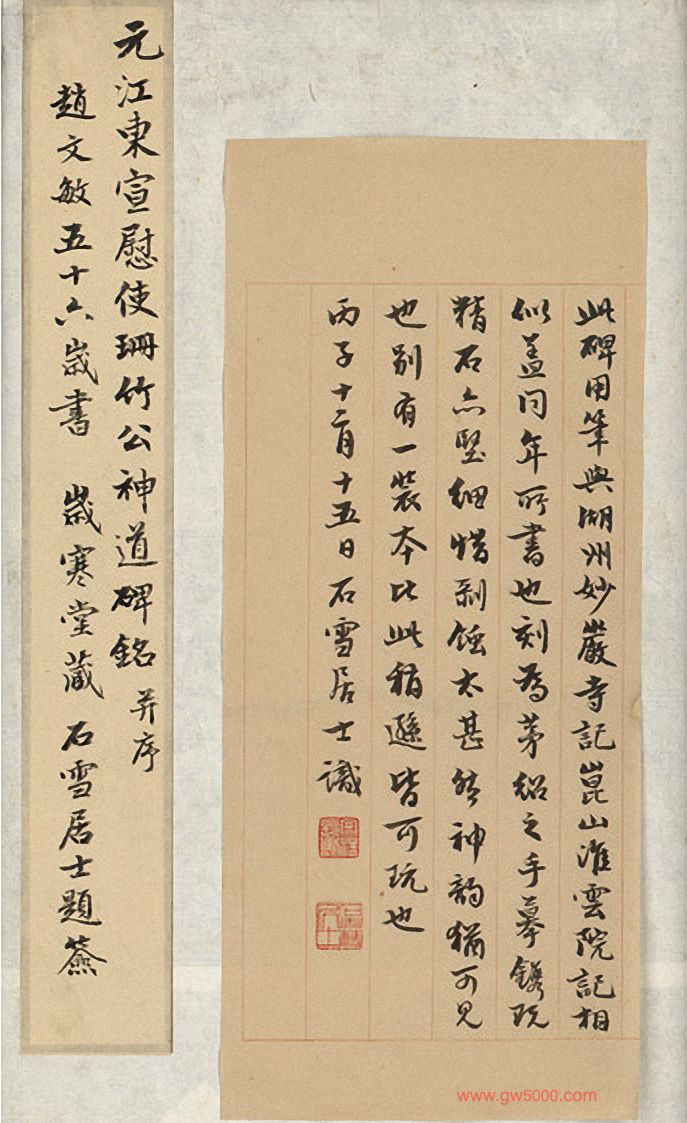 此碑用筆與湖州妙嚴寺記崑山淮雲院記相
似蓋同年所書也刻為茅紹之手摹鐫既
精石亦堅細惜剥蝕太甚然神韵猶可見
也别有一裝本比此稍遜皆可玩也
丙子十二月十五日石雪居士識
元江東宣慰使珊竹公神道碑銘 并序
趙文敏五十六歲書 歲寒堂藏 石雪居士題簽
www.gw5000.com